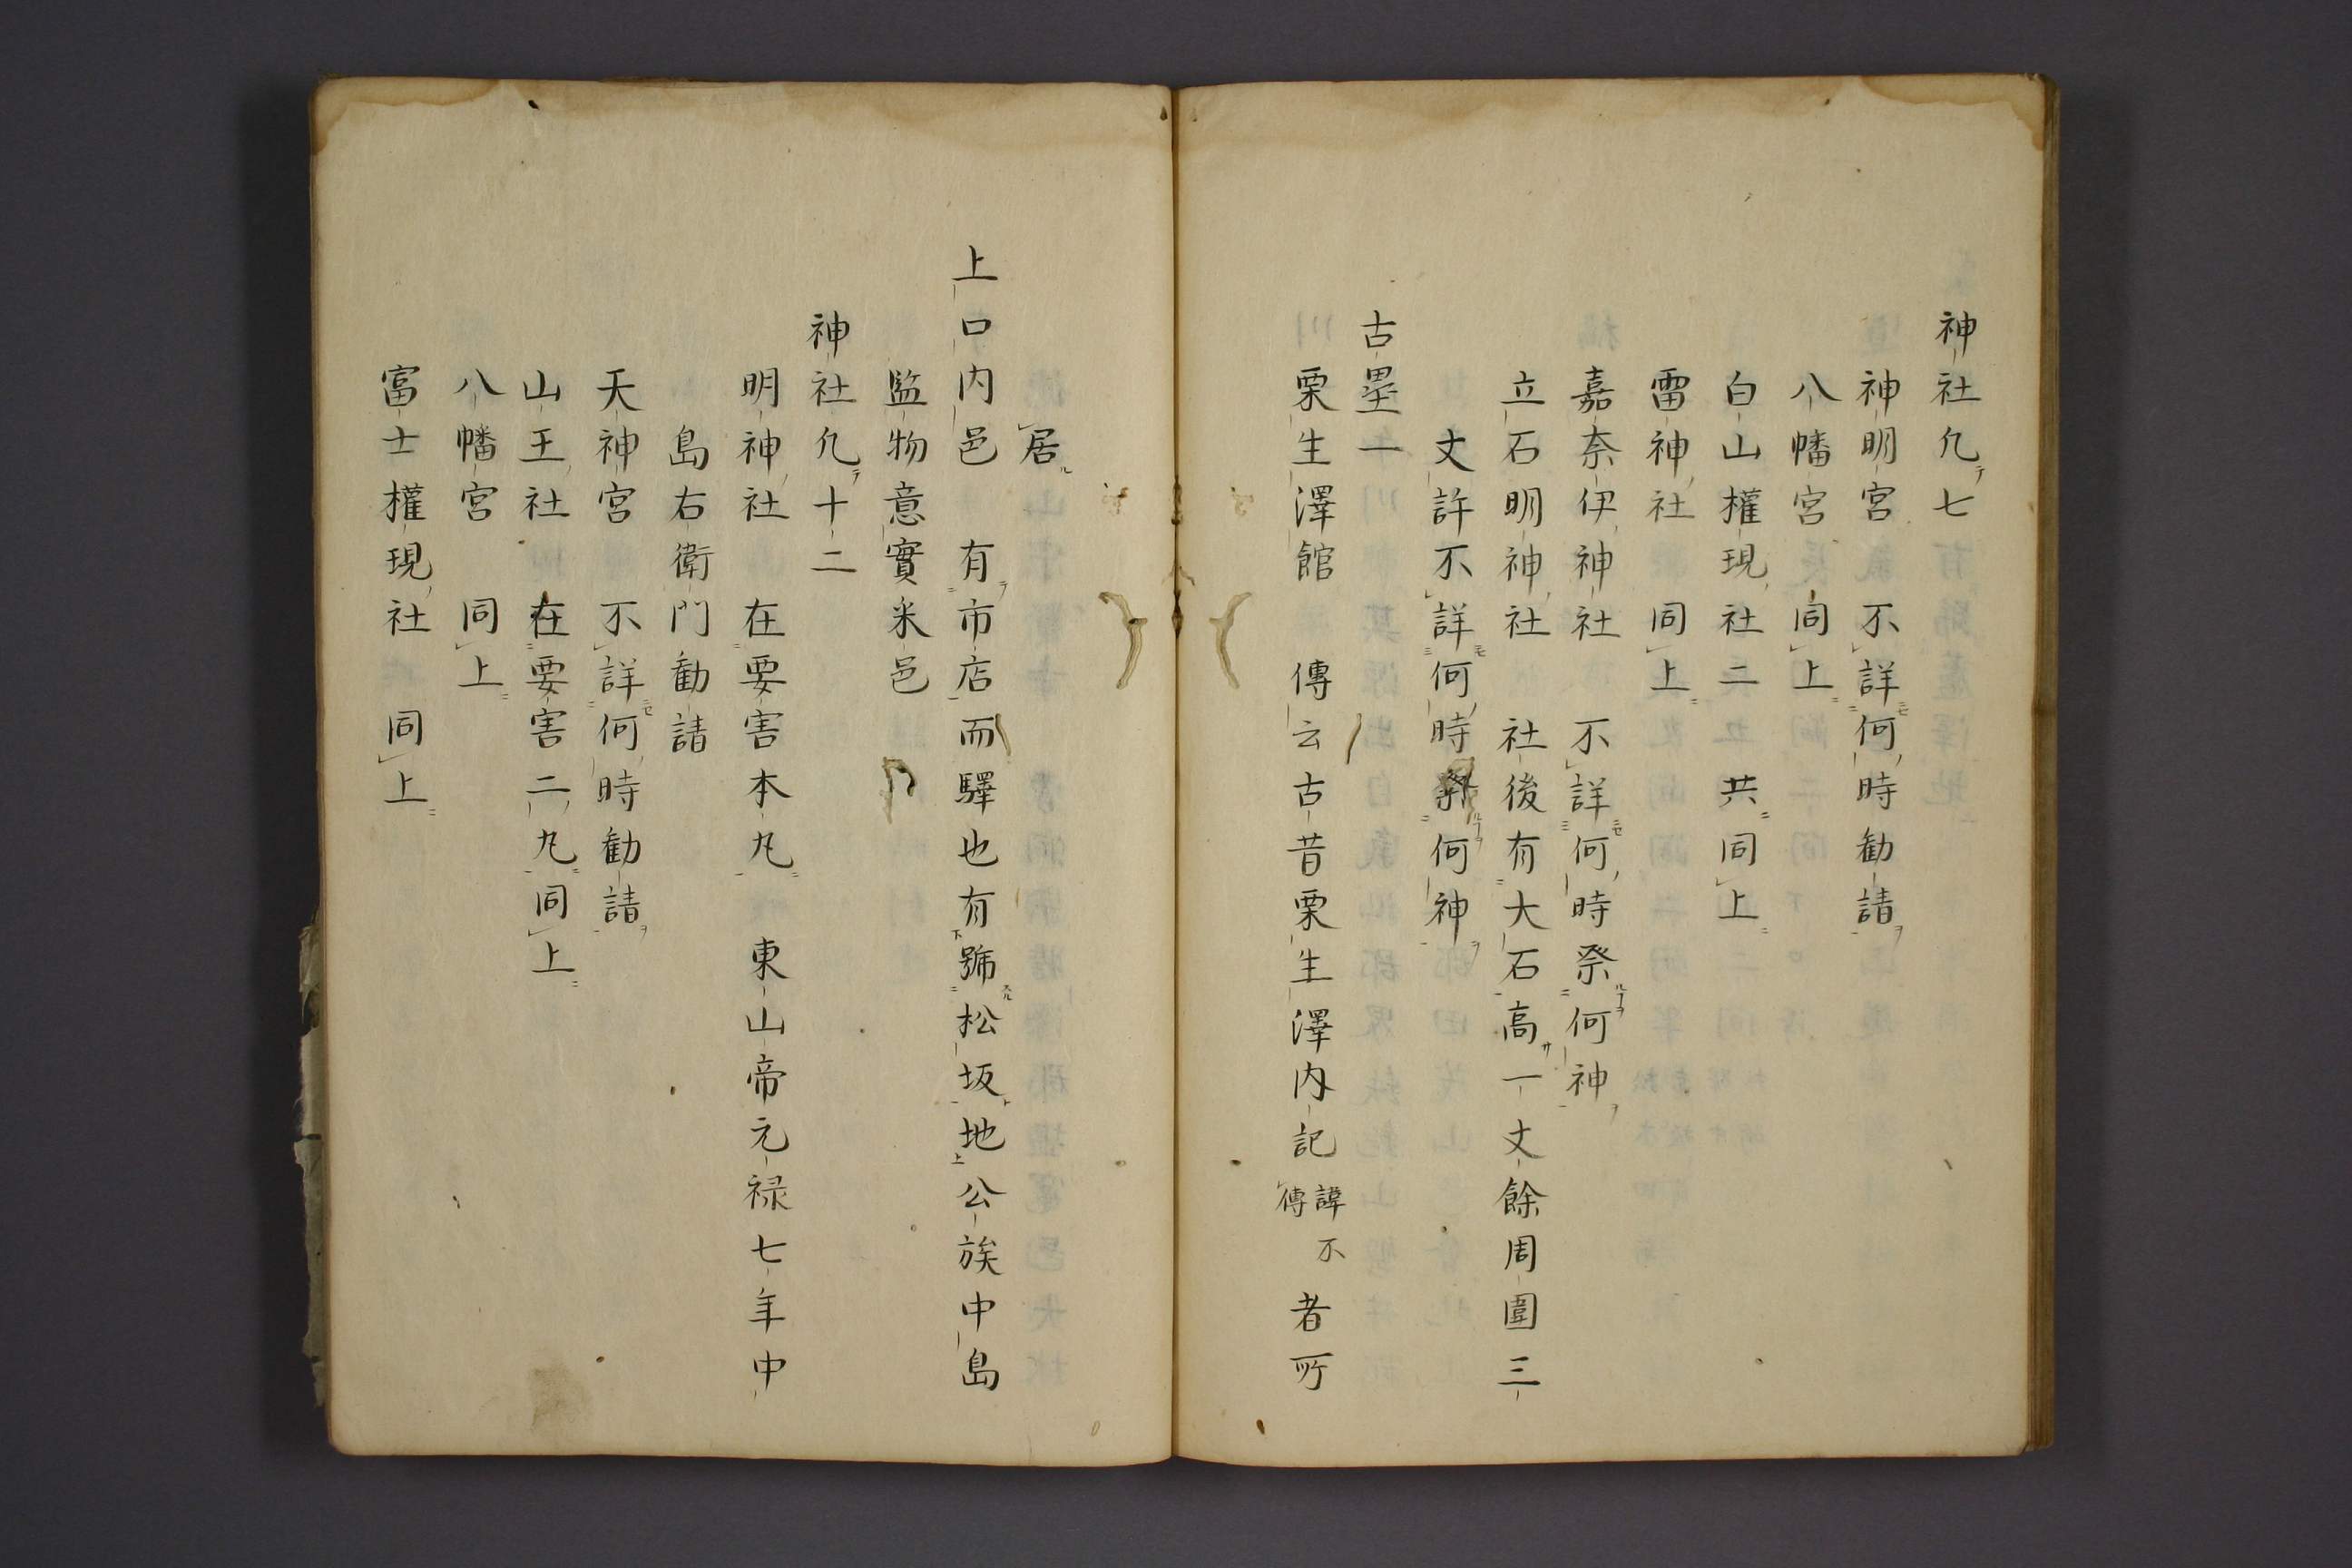 神社凡テ七
神明宮 不詳何時勧請
八幡宮 同上
白山權現社二 共同上
雷神社 同上
嘉奈伊神社 不詳何時祭何神
立石明神社 社後有大石高サ一丈餘周圍三
丈許不詳何時祭何神
古壘一
栗生澤館 傳云古昔栗生澤内記諱不傳者所
居
上口内邑 有市店而驛也有號松坂地公族中島
監物意實釆邑
神社凡テ十二
明神社 在要害本丸 東山帝元禄七年中
島右衛門勧請
天神宮 不詳何時勧請
山王社 在要害二丸同上
八幡宮 同上
富士權現社 同上